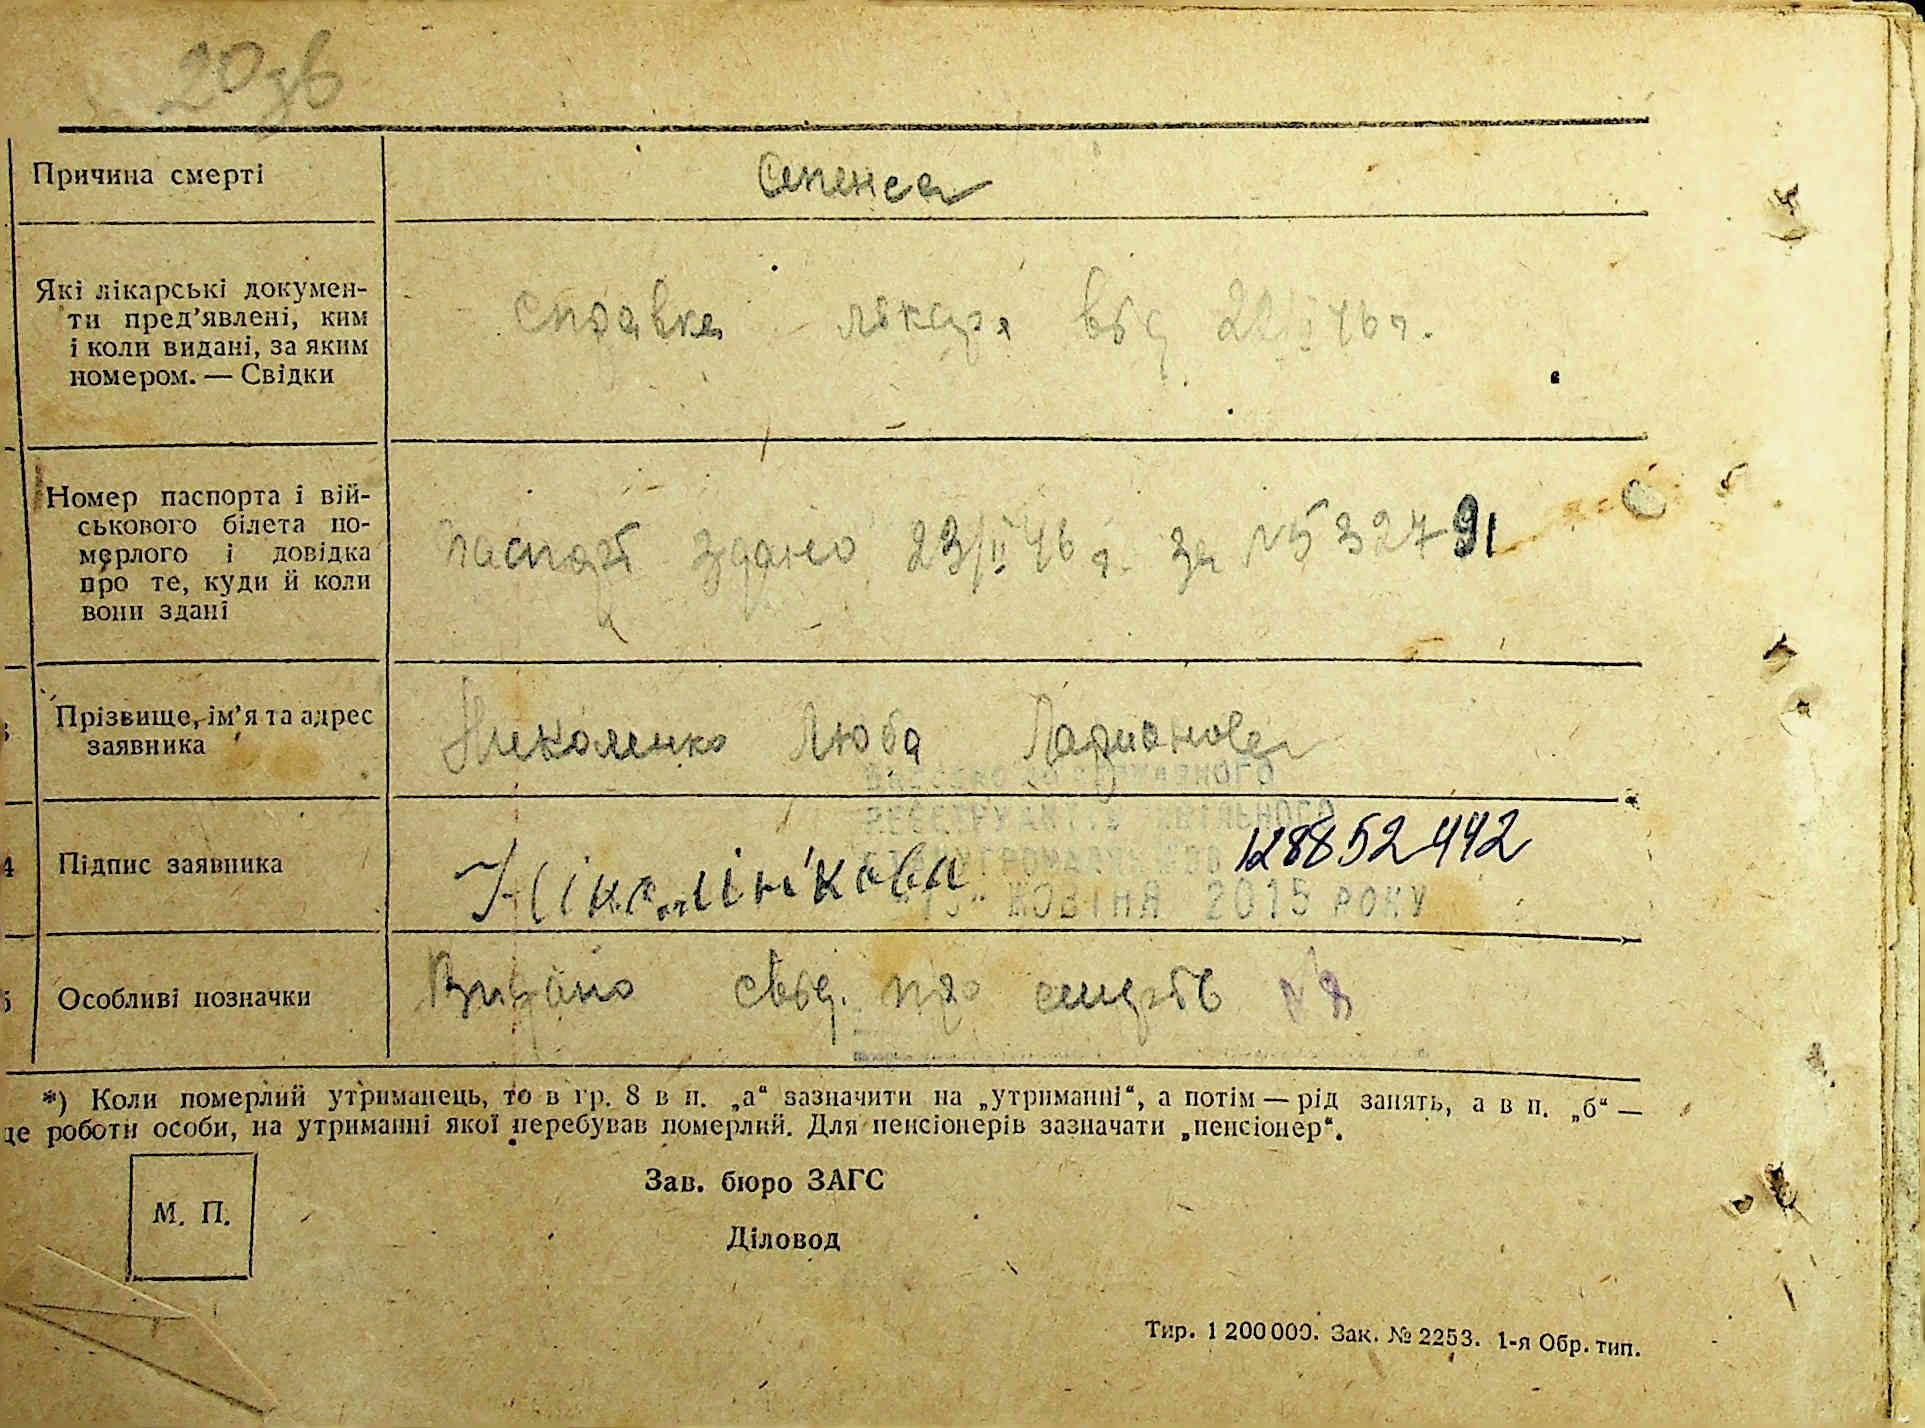 20зв
Причина смерті
Сепенса
Які лікарські докумен-
ти пред’явлені, ким
і коли видані, за яким
номером. — Свідки
справка лікаря від 22/ 46 р.
Номер паспорта і вій-
ськового білета по-
мерлого і довідка
про те, куди й коли
вони здані
паспорт здано 23/II 46 р. за №532791
Прізвище, ім’я та адрес
заявника
Николенко Люба Ларионова
ВНЕСЕНО ДО ДЕРЖАВНОГО
РЕЄСТРУ АКТІВ ЦИВІЛЬНОГО
СТАНУ ГРОМАДЯН
128852442
4 Підпис заявника
"15" ЖОВТНЯ 2015 РОКУ
5 Особливі позначки
Видано свід. про смерть №
*) Коли померлий утриманець, то в гр. 8 в п. „а“ зазначити на „утриманні“, а потім — рід занять, а в п. „б“ —
де роботи особи, на утриманні якої перебував померлий. Для пенсіонерів зазначати „пенсіонер“.
М. П.
Зав. бюро ЗАГС
Діловод
Тир. 1 200 000. Зак. № 2253. 1-я Обр. тип.